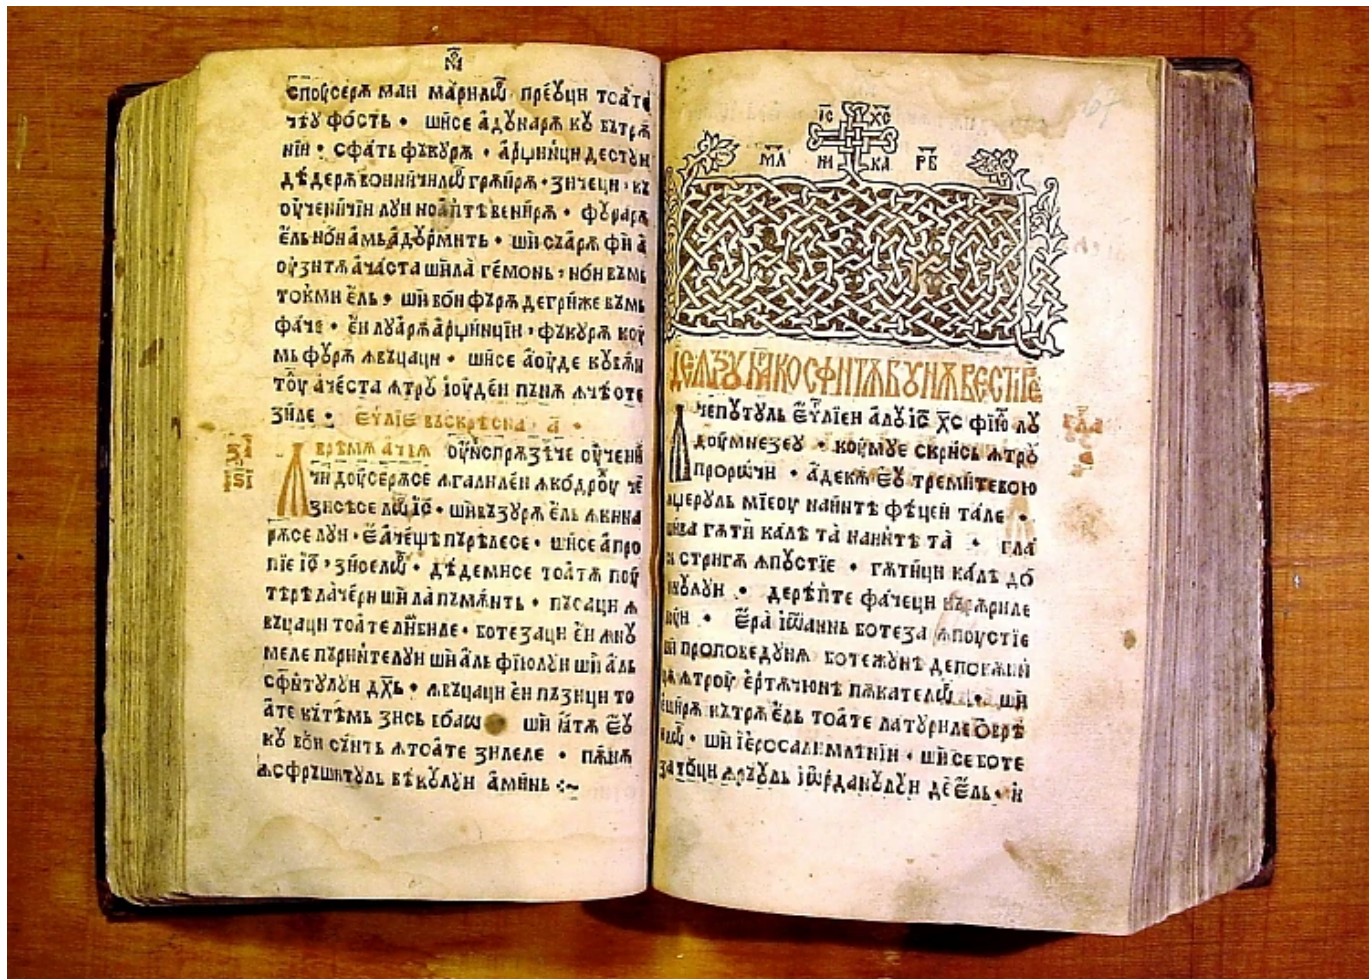 спꙋсерѫ маи марилѡⷬ преѹци тоате
че ѹ фость • шисе адꙋнарѫ кꙋ бътрѫ
нїи • сфать фъкꙋрѫ • арџинци дестꙋн
дѣдерѫ воиничилѡⷬ грѫирѫ • зичеци • къ
ѹченичїи лꙋи ноаптѣ венирѫ • фꙋрарѫ
ель нои амь адормить • ши съарѫ фи а
ѹзитѫ ачаста шила гемонь • нои въмь
токми ель • ши вои фърѫ дегриже въмь
фаче • еи лꙋарѫ арџинцїи • фъкꙋрѫ кѹ
мь фꙋрѫ ѫвъцаци • шисе аѹде кꙋвѫн
тѹ ачеста ѫтрꙋ іѹдеи пънѫ ѫчѣсте
зиле • еѵⷢлїе въскрⷭсна а҃ •
времѧ ачѣѧ ѹнспрѫзѣче ѹчени
чи дѹсерѫсе ѫгалилеи ѫкодрѹ че
зисѣсе лѡⷬ іс҃ • шивъзꙋрѫ ель ѫкина
рѫсе лꙋи • еⷤ ачещѣ пърѣлесе • шисе апро
пїе іс҃ • зиселѡⷬ • дѣдемисе тоатѫ пꙋ
тѣрѣ лачерн шила пъмѫнть • пъсаци ѫ
въцаци тоателимбиле • ботезаци еи ѫнꙋ
меле пъринтелꙋи ши аль фїюлꙋи ши аль
сфнтꙋлꙋи дх҃ь • ѫвъцаци еи пъзици то
ате кътѣмь зись воаѡ • ши ꙗтѫ еꙋ
кꙋ вои сꙋнть ѫтоате зилеле • пѫнѫ
ѫсфръшитꙋль вѣкꙋлꙋи аминь :~
іс҃ хс҃
мл҃ ж ка рб҃
чепꙋтꙋль еѵⷢлїеи алꙋ іс҃ хс҃ фїю лꙋ
дꙋмнезеꙋ • кѹмꙋе скрись ѫтрꙋ
пророчи • адекѫ еꙋ тремитевою
аџерꙋль мїеꙋ наинтѣ фѣцеи тале •
шива гѫти калѣ та наинтѣ та • гла
стригѫ ѫпꙋстїе • гѫтици калѣ до
мнꙋлꙋи • дерѣпте фачеци кърѫриле
лꙋи • ера іѡаннь ботеза ѫпꙋстїе
ши проповедꙋꙗ ботежꙋнѣ депокѫи
цѫ ѫтрꙋ ертѫчюне пѫкателѡⷬ • ши
еширѫ кътрѫ ель тоате латꙋриле ѻврѣ
илѡⷬ • ши іеросалимлѣнїи • шисеботе
затоци ѫръꙋль іѡрданꙋлꙋи де ель • и